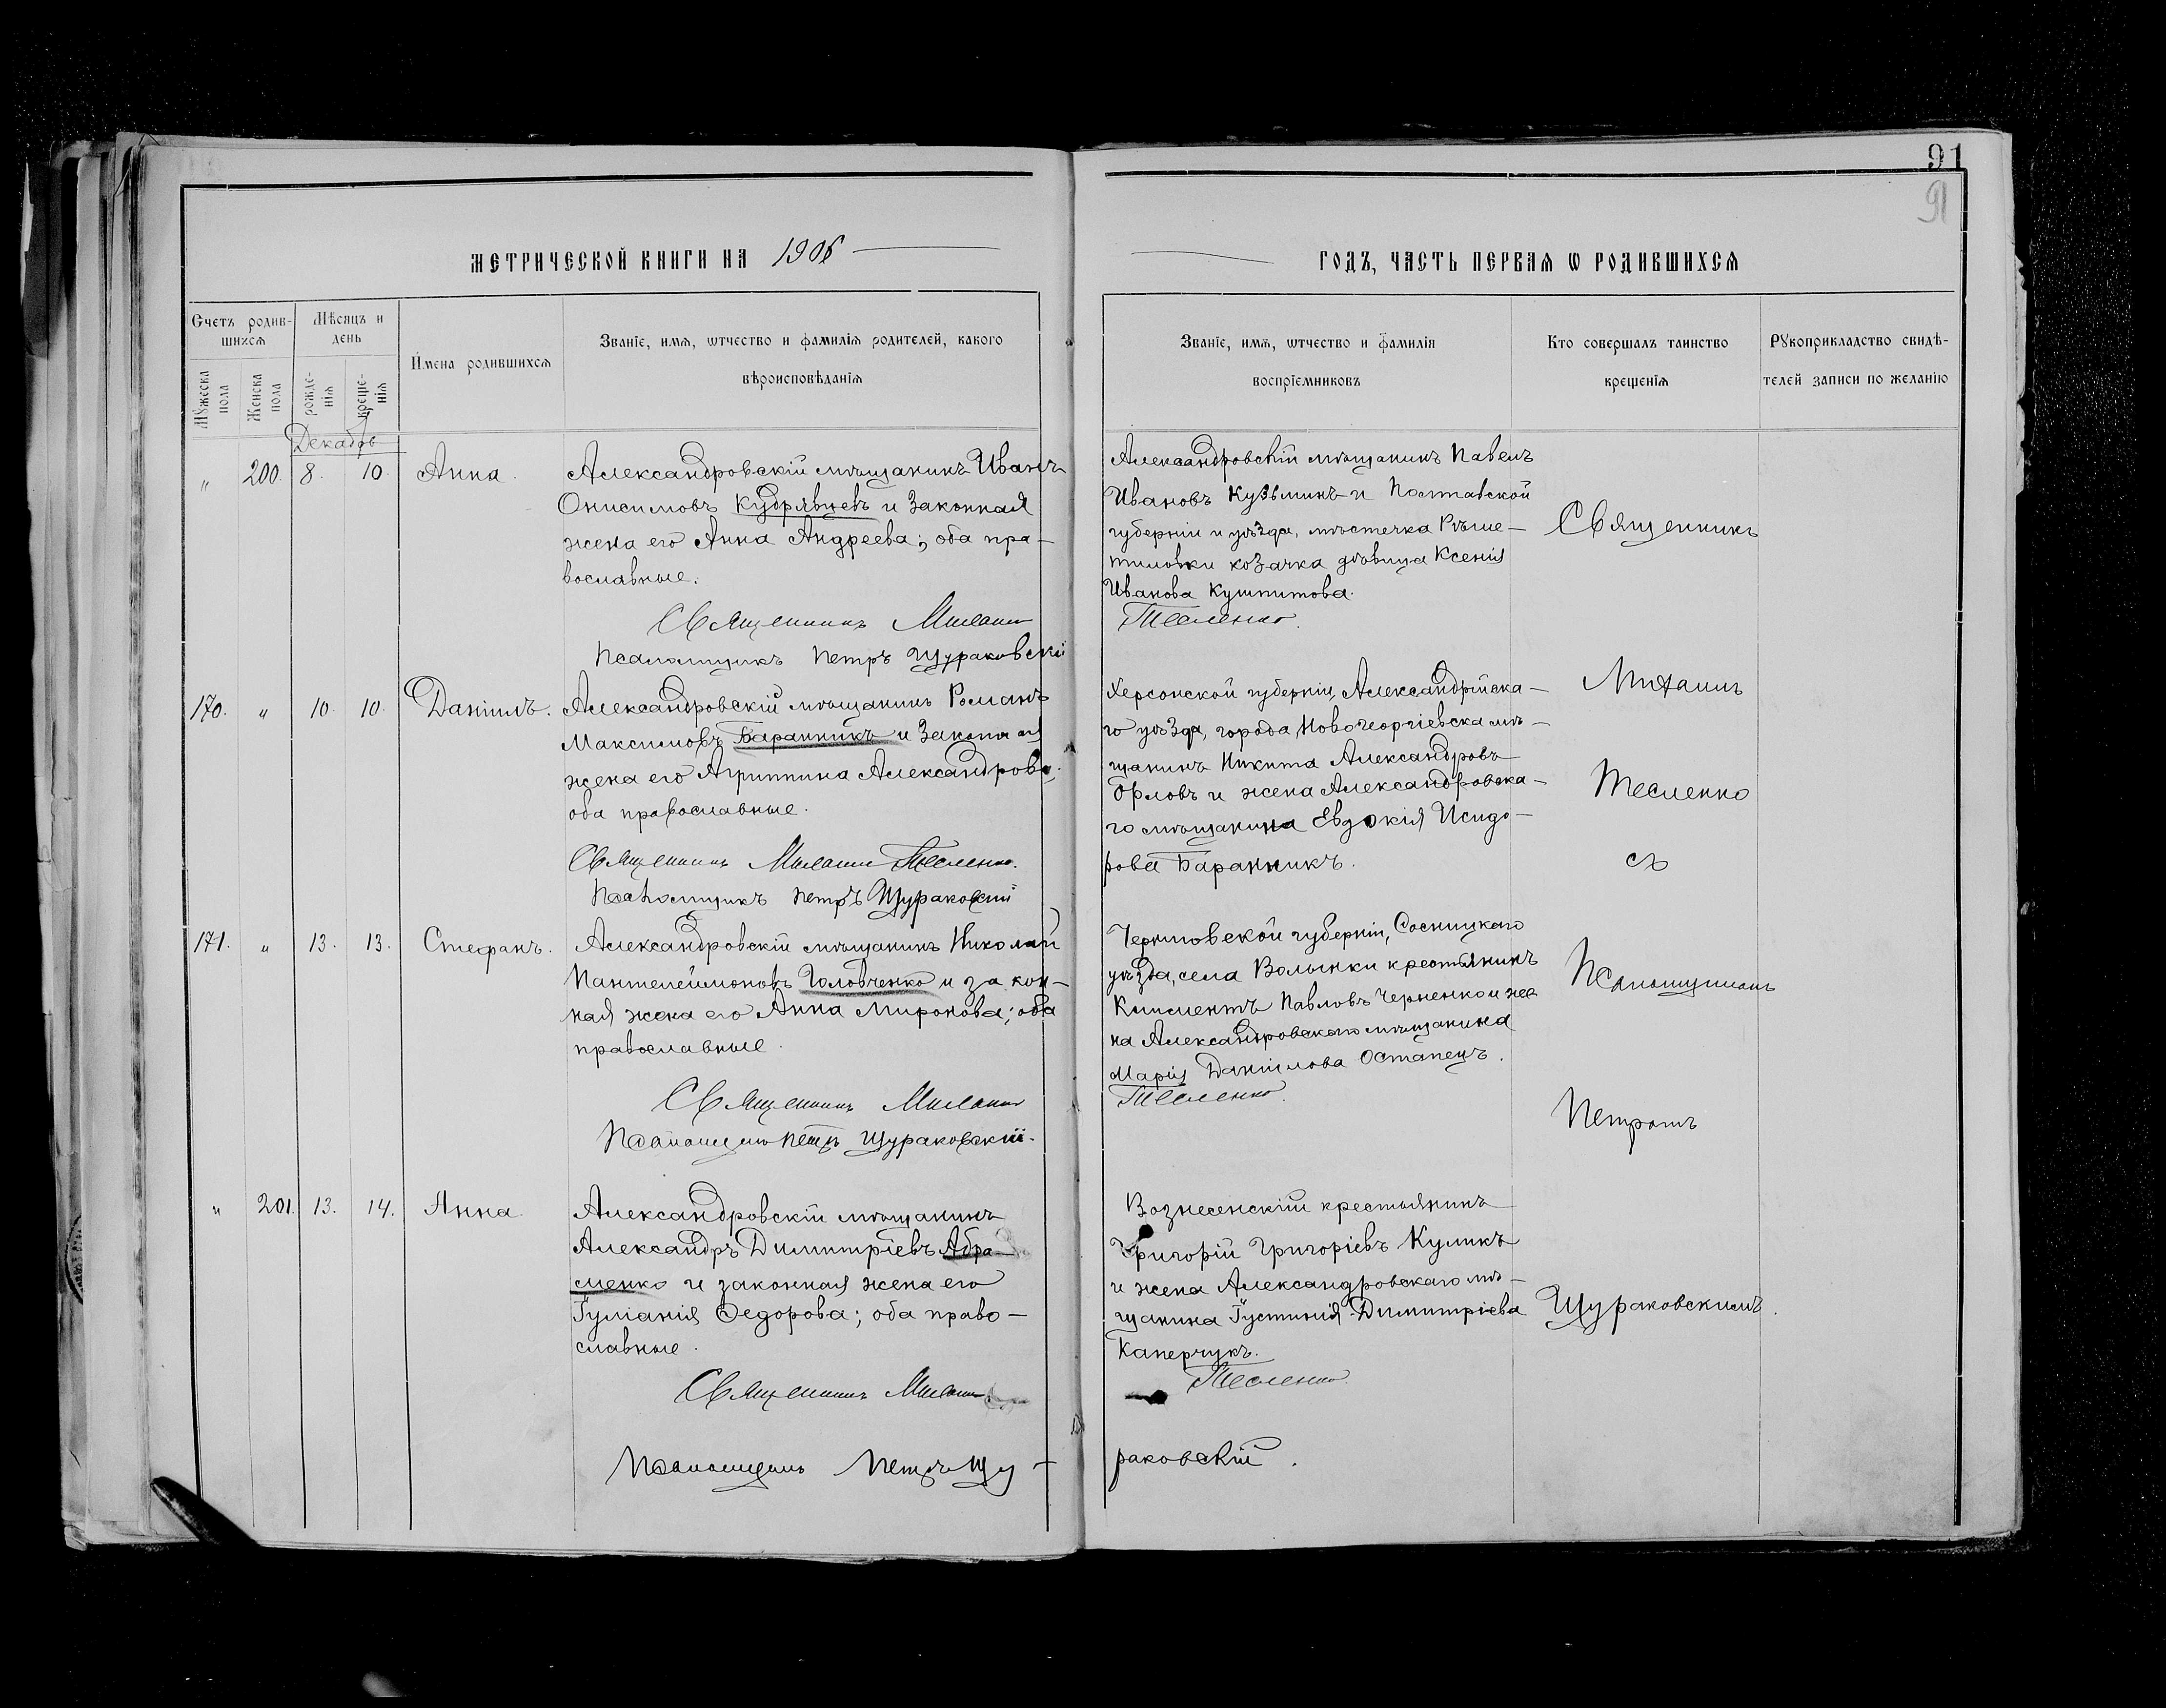 91
91
МЕТРИЧЕСКОЙ КНИГИ НА 1906
ГОДЪ, ЧАСТЬ ПЕРВАЯ Ѡ РОДИВШИХСЯ
Счетъ родив-
шихся
Мѣсяцъ и
день
Имена родившихся
Званіе, имя, ѡтчество и фамилія родителей, какого
вѣроисповѣданія
Мꙋжеска
пола
Женска
пола
рожде-
нія
креще-
нія
Званіе, имя, ѡтчество и фамилія
воспріемниковъ
Кто совершалъ таинство
крещенія
Рꙋкоприкладство свидѣ-
телей записи по желанію
Декабрь
„ 200. 8. 10. Анна.
Александровскій мѣщанинъ Иванъ
Онисимовъ Кудрявцевъ и законная
жена его Анна Андреева; оба пра-
вославные.
Священникъ Михаилъ
Псаломщикъ Петръ Щураковскій
Александровскій мѣщанинъ Павелъ
Ивановъ Кузьминъ и Полтавской
губерніи и уѣзда, мѣстечка Рѣше-
тиловки козачка дѣвица Ксенія
Иванова Кушпитова.
Тесленко.
170. „ 10. 10. Даніилъ.
Александровскій мѣщанинъ Романъ
Максимовъ Баранникъ и законная
жена его Агриппина Александрова;
оба православные.
Священникъ Михаилъ Тесленко.
Псаломщикъ Петръ Щураковскій
Херсонской губерніи, Александрійска-
го уѣзда, города Новогеоргіевска мѣ-
щанинъ Никита Александровъ
Орловъ и жена Александровска-
го мѣщанина Евдокія Исидо-
рова Баранникъ.
171. „ 13. 13. Стефанъ.
Александровскій мѣщанинъ Николай
Пантелеймоновъ Головченко и закон-
ная жена его Анна Миронова; оба
православные.
Священникъ Михаилъ
Псаломщикъ Петръ Щураковскій.
Черниговской губерніи, Сосницкаго
уѣзда, села Волынки крестьянинъ
Климентъ Павловъ Черненко и же
на Александровскаго мѣщанина
Марія Даніилова Остапецъ.
Тесленко.
„ 201. 13. 14. Анна.
Александровскій мѣщанинъ
Александръ Димитріевъ Абра-
менко и законная жена его
Іуліанія Ѳедорова; оба право-
славные.
Священникъ Михаилъ
Псаломщикъ Петръ Щу-
Вознесенскій крестьянинъ
Григорій Григоріевъ Куликъ
и жена Александровскаго мѣ-
щанина Іустинія Димитріева
Каперчукъ.
Тесленко.
раковскій.
Священникъ
Михаилъ
Тесленко
съ
Псаломщикомъ
Петромъ
Щураковскимъ.